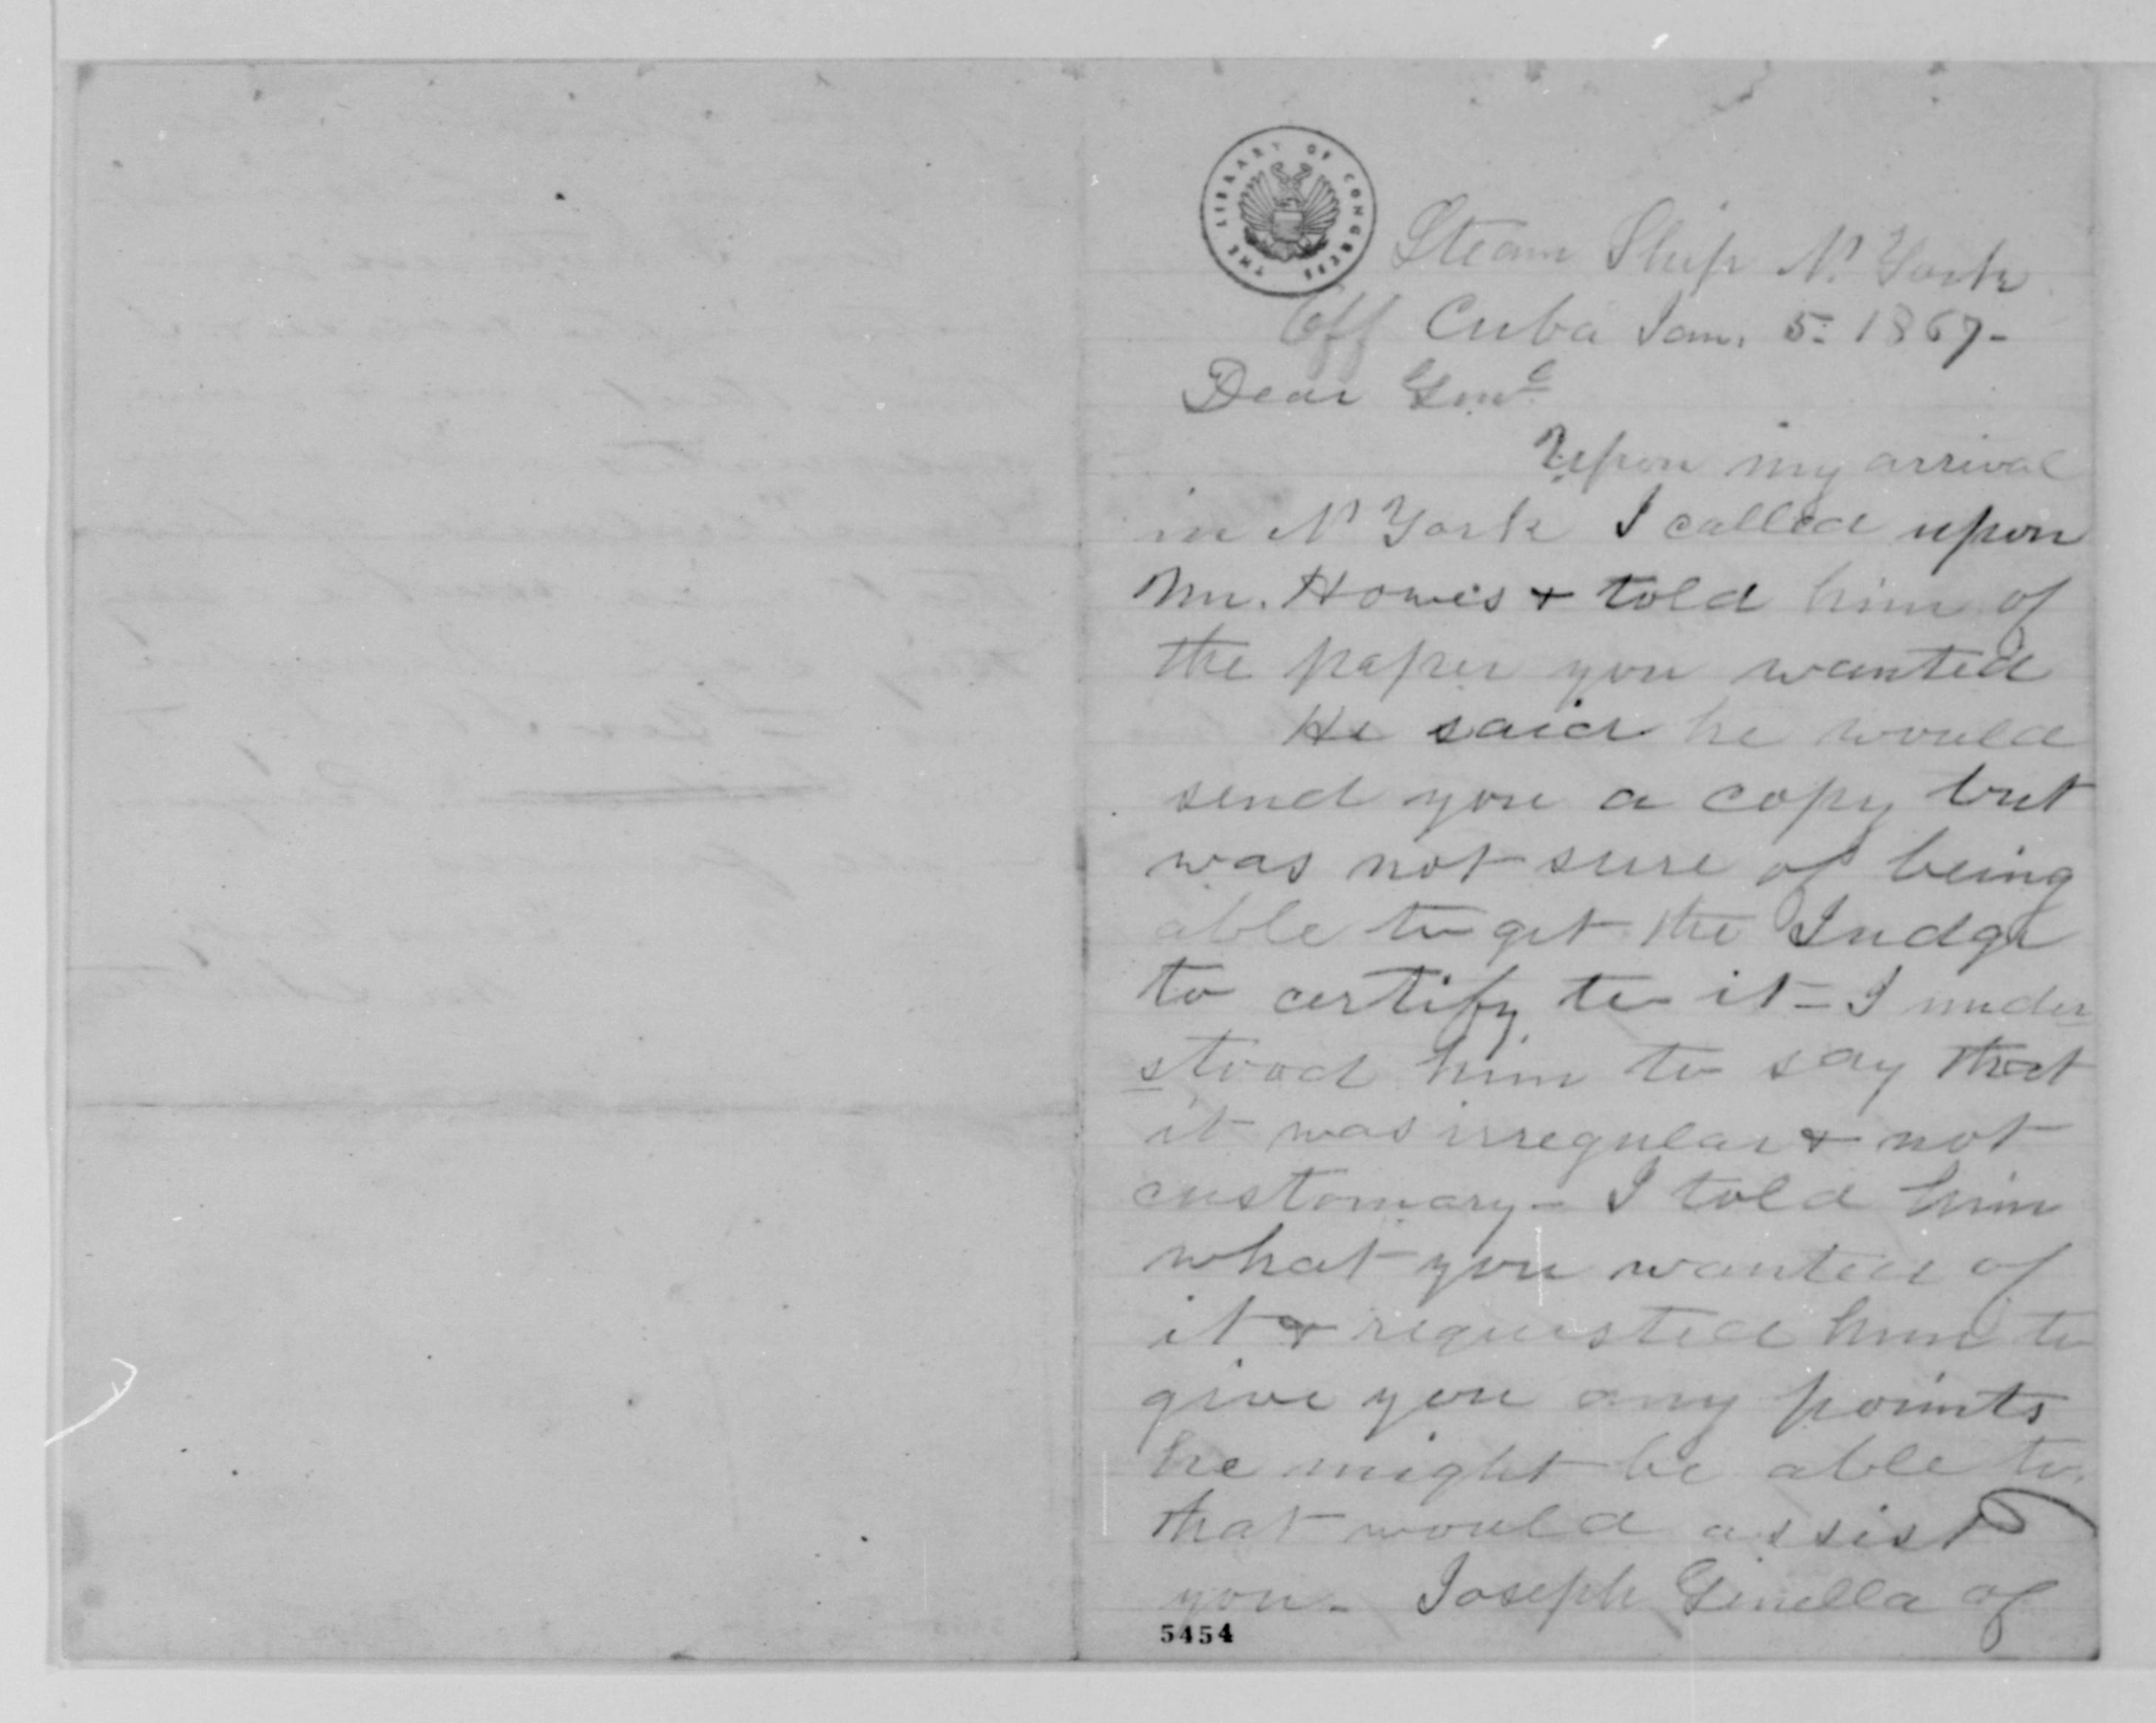 THE LIBRARY OF CONGRESS
Steam Ship N. York
Off Cuba Jan. 5. 1867-
Dear Genl
Upon my arrival
in N York I called upon
Mr. Howes + told him of
the paper you wanted
He said he would
send you a copy but
was not sure of being
able to get the Judge
to certify to it - I under
stood him to say that
it was irregular + not
customary - I told him
what you wanted of
it + requested him to
give you any points
he might be able to
that would assist
you - Joseph Ginella of
5454